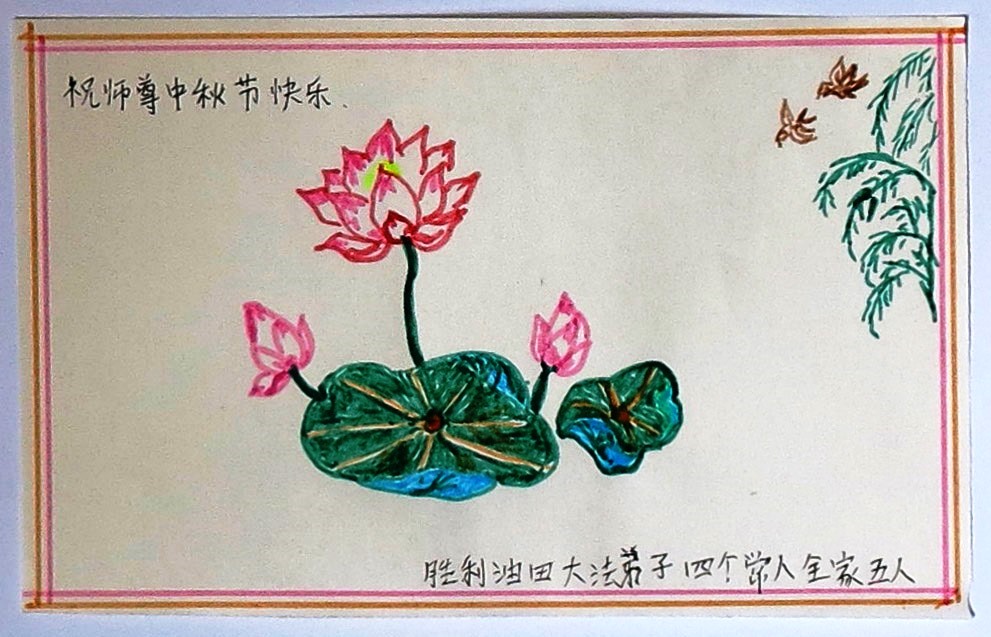 祝师尊中秋节快乐.
胜利油田大法弟子四个常人全家五人